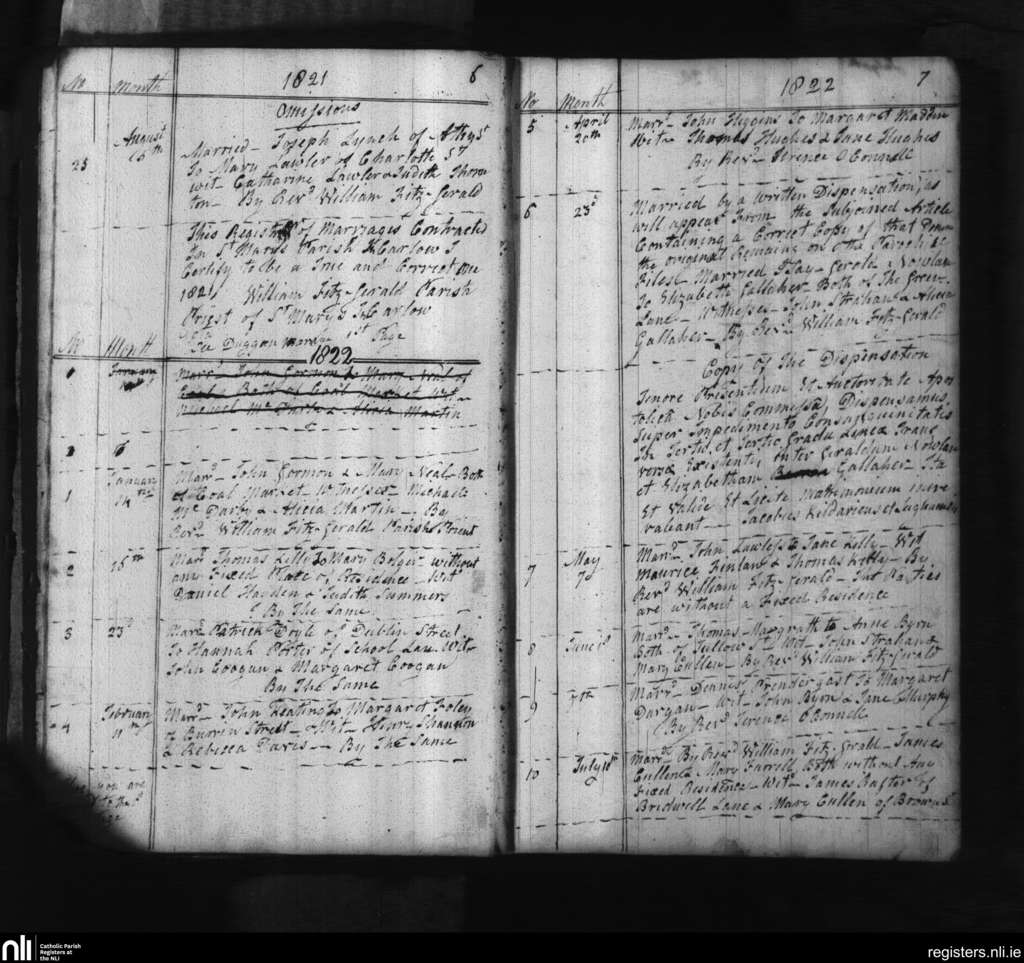 No Month 1821 6
Omissions
25 August 15th Married - Joseph Lynch of Athy St
To Mary Lawler of Charlotte St
wit Catharine Lawler & Judith Thorn
ton - By Revd William Fitz-Gerald
This Register of Marriages Contracted
In St Marys Parish Carlow I
Certify to be a True and Correct one
1821 William Fitz-Gerald Parish
Priest of St Marys Carlow
See Duggan 1st Page
No Month 1822
1 Marr John Gormon & Mary Neal of
Both of Coal Market Wit
Michael Mc Darby & Alicia Martin
2 6
1 January 14th Marrd John Gormon & Mary Neal Both
of Coal Market - Witnesses - Michael
Mc Darby & Alicia Martin - By
Revd William Fitz-Gerald Parish Priest
2 15th Marrd Thomas Kelly to Mary Bolger without
any Fixed Place of Residence - Wit
Daniel Hayden & Judith Summers
By The Same
3 23d Marrd Patrick Doyle of Dublin Street
To Hannah Porter of School Lane Wit
John Coogan & Margaret Coogan
By The Same
4 February 11th Marrd John Keating to Margaret Foley
of Burren Street - Wit - Henry Shannon
& Rebecca Paris - By The Same
you are
to the
No Month 1822 7
5 April 20th Marrd - John Higgins To Margaret Madden
Wit - Thomas Hughes & Jane Hughes
By Revd Terence O Connell
6 23d Married by a Written Dispensation, as
will appear From the Subjoined Article
Containing a Correct Copy of that Document
the original Remaining on the Parochial
Files Married I Say - Gerald Nowlan
To Elizabeth Gallaher Both of The Green
Lane - Witnesses - John Strahan & Alicia
Gallaher - By Revd William Fitz-Gerald
Copy of The Dispensation
Tenore Presentium Et Auctoritate Apos
tolica Nobis Commissa, Dispensamus
Super Impedimento Consanguinitatis
In Tertio et Tertio Gradu Linea Trans
versa Existenti, inter Geraldum Nowlan
et Elizabetham Gallaher Ita
Et Valide Et Licite Matrimonium inire
valeant - Jacobus Kildariensis et Leighliniensis
7 May 7th Marrd - John Lawless to Jane Kelly - Wit
Maurice Kinlan & Thomas Kelly - By
Revd William Fitz-Gerald - But Parties
are without a Fixed Residence
8 June 1st Marrd - Thomas Magrath to Anne Byrn
Both of Tullow St Wit - John Strahan &
Mary Cullen - By Revd William Fitz-Gerald
9 7th Marrd - Dennis Prendergast To Margaret
Dargan - Wit - John Byrn & Jane Murphy
By Revd Terence O Connell
10 July 10th Marrd By Revd William Fitz-Gerald - James
Cullen & Mary Farrell Both without Any
Fixed Residence - Wit - James Rafter of
Bridwell Lane & Mary Cullen of Brown St
nli Catholic Parish
Registers at
the NLI
registers.nli.ie